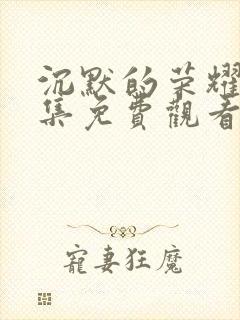 沉默的荣耀
集免費觀看
寵妻狂魔